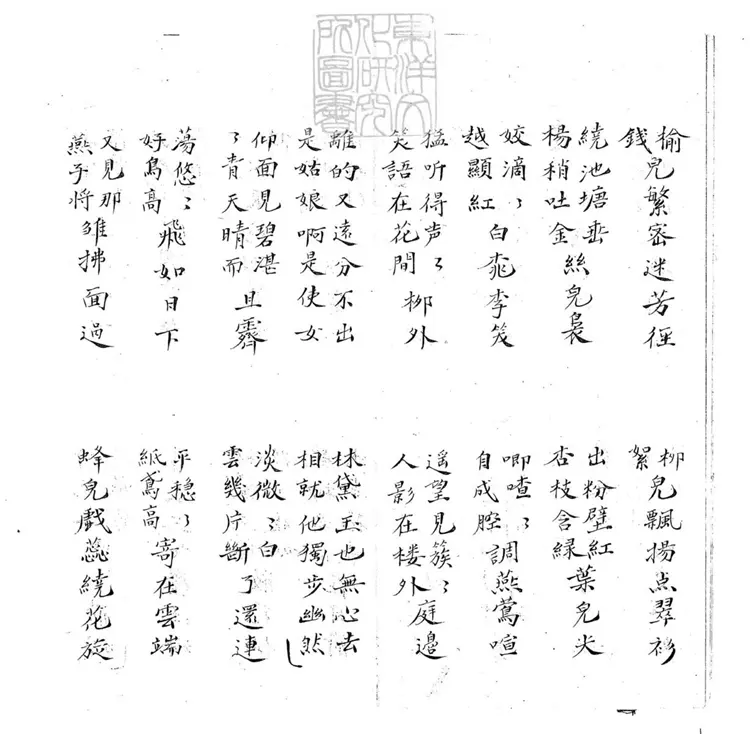 東洋文化研究所圖書
榆錢兒繁密迷芳徑
柳絮兒飄揚点翠衫
繞池塘垂楊稍吐金絲兒裊
出粉壁紅杏枝含緑葉兒尖
姣滴ヽ越顯紅白桃李笑
唧喳ヽ自成腔調燕鶯喧
猛听得声ヽ笑語在花間柳外
遥望見簇ヽ人影在楼外庭邉
離的又遠分不出是姑娘啊是使女
林黛玉也無心去相就他獨步幽然
仰面見碧湛ヽ青天晴而且霽
淡微ヽ白雲幾片斷了還連
蕩悠ヽ好鳥高飛如日下
平穩ヽ紙鳶高寄在雲端
又見那燕子將雛拂面過
蜂兒戲蕊繞花旋